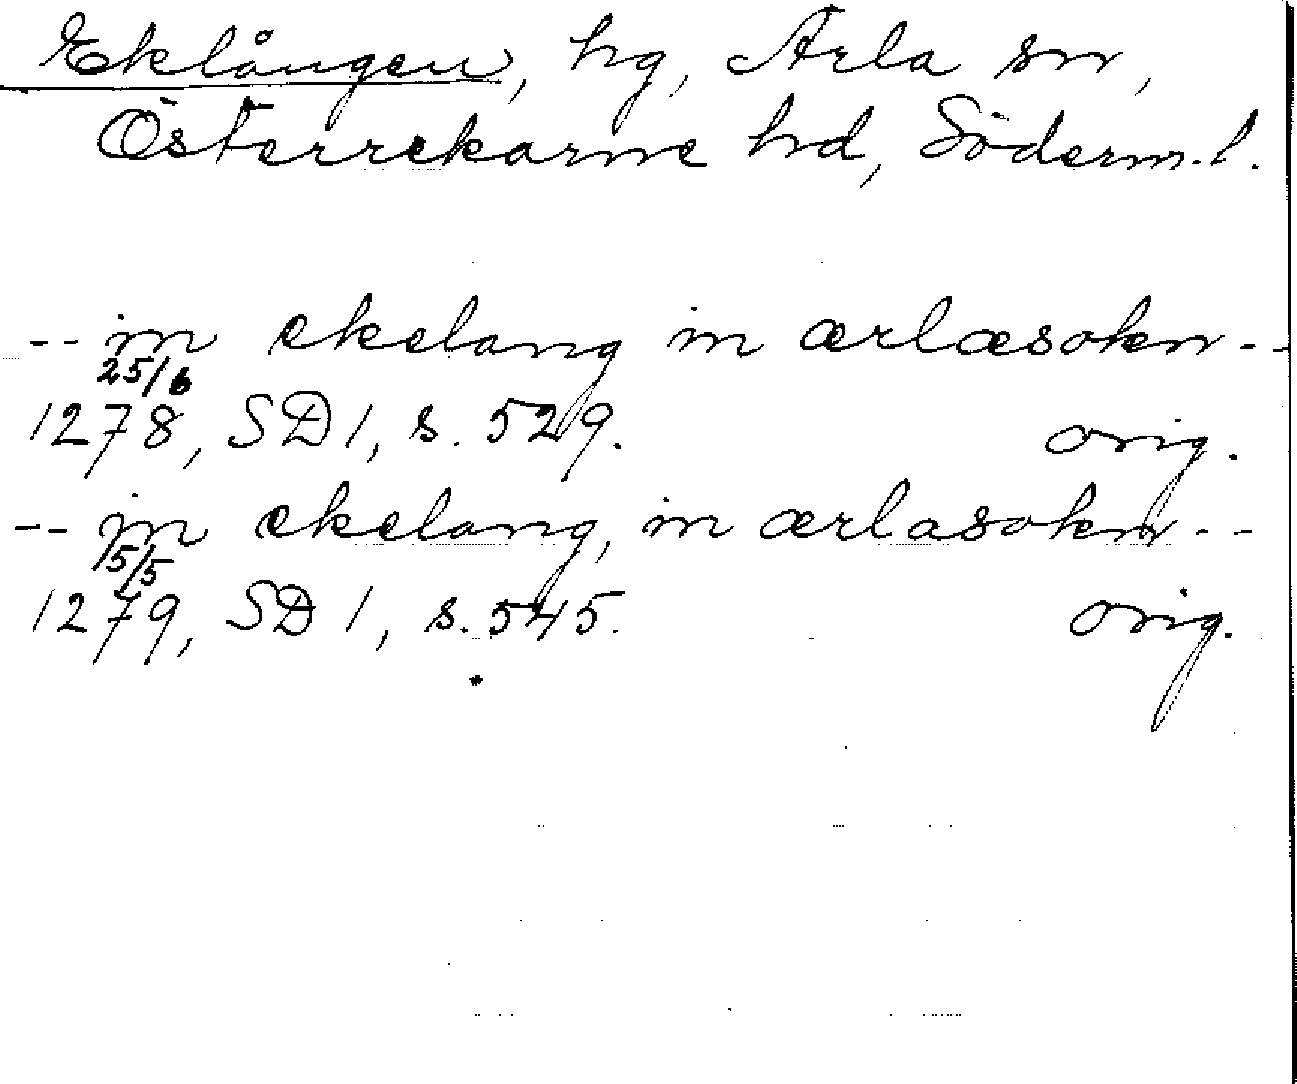 Eklången, hg, Ärla sn,
Österrekarne hd, Söderm. l.
-- in ekelang in ærlæsokn --
25/6
1278, SD 1, s. 529. orig.
-- in ekelang, in ærlasokn --
15/5
1279, SD 1, s. 545. orig.